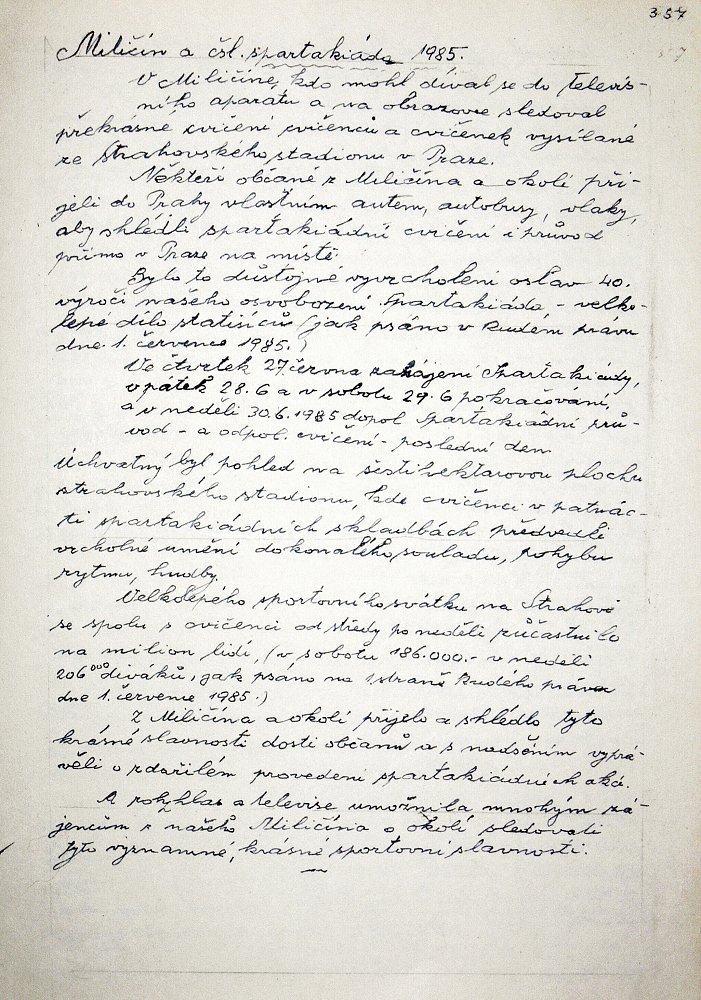 357
Miličín a čsl. spartakiáda 1985.
V Miličíně, kdo mohl díval se do televis-
ního aparátu a na obrazovce sledoval
překrásné cvičení cvičenců a cvičenek vysílané
ze Strahovského stadionu v Praze.
Někteří občané z Miličína a okolí při-
jeli do Prahy vlastním autem, autobusy, vlaky,
aby shlédli spartakiádní cvičení i průvod
přímo v Praze na místě.
Bylo to důstojné vyvrcholení oslav 40.
výročí našeho osvobození. Spartakiáda - velko-
lepé dílo statisíců (jak psáno v Rudém právu
dne 1. července 1985.)
Ve čtvrtek 27. června zahájení Spartakiády,
v pátek 28.6 a v sobotu 29.6 pokračování,
a v neděli 30.6.1985 dopol. Spartakiádní prů-
vod - a odpol. cvičení - poslední den
Úchvatný byl pohled na šestihektarovou plochu
strahovského stadionu, kde cvičenci v patnác-
ti spartakiádních skladbách předvedli
vrcholné umění dokonalého souladu, pohybu
rytmu, hudby.
Velkolepého sportovního svátku na Strahově
se spolu s cvičenci od středy po neděli zúčastnilo
na milion lidí, (v sobotu 186.000.- v neděli
206 000 diváků, jak psáno na 1. straně Rudého práva
dne 1. července 1985.)
Z Miličína a okolí přijelo a shlédlo tyto
krásné slavnosti dosti občanů a s nadšením vyprá-
věli o zdařilém provedení spartakiádních akcí.
A rozhlas a televise umožnila mnohým zá-
jemcům z našeho Miličína a okolí sledovati
tyto významné, krásné sportovní slavnosti.